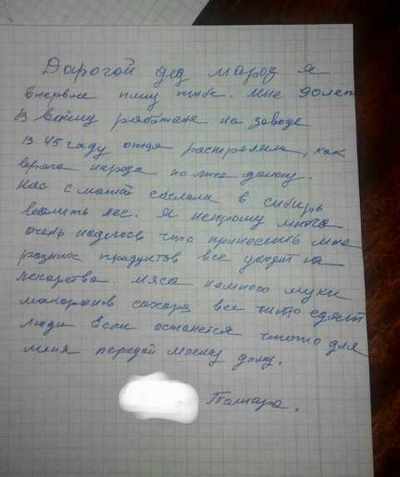 Дорогой дед мароз я
впервые пишу тибе. Мне 90 лет
В войну работала на заводе
В 45 гаду отца растреляли, как
врага народа по лже доносу.
Нас с мамой сослали в сибирь
валить лес. Я непрошу многа
очень надеюсь что принесешь мне
разних продуктов все уходит на
лекарства. мяса немного муки
макаронов сахара все что едят
люди Если останется чтото для
меня передай моему дону.
Тамара.